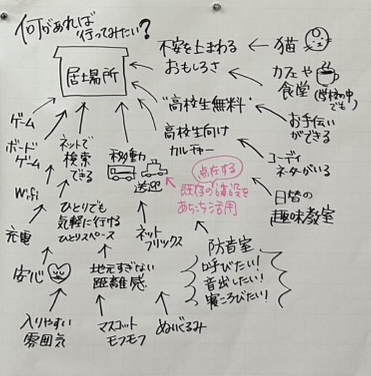 何があれば
行ってみたい?
居場所
不安を上まわる
おもしろさ
猫
カフェや
食堂(学校の中
でも)
"高校生無料"
お手伝い
ができる
高校生向け
カルチャー
コーディ
ネターがいる
日替の
趣味教室
ゲーム
ボード
ゲーム
Wifi
充電
安心
入りやすい
雰囲気
ネットで
検索
できる
ひとりでも
気軽に行ける
ひとりスペース
地元すぎない
距離感
マスコット
モフモフ
移動
送迎
点在する
既存の施設を
あちこち活用
ネット
フリックス
ぬいぐるみ
防音室
呼びたい!
音出したい!
寝ころびたい!